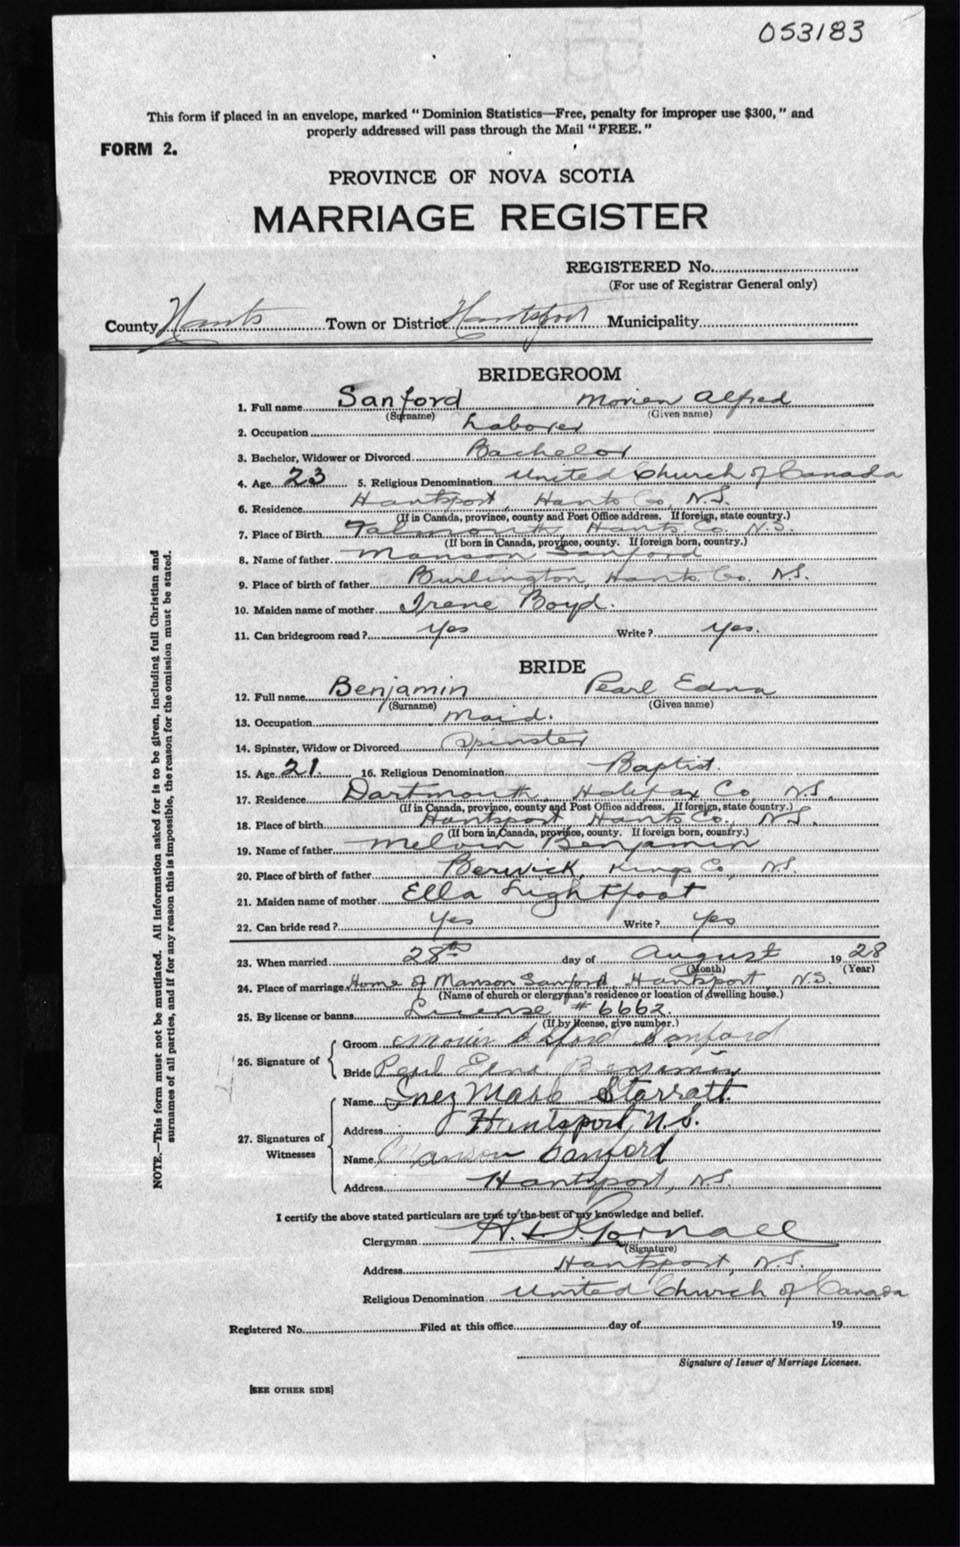 053183
This form if placed in an envelope, marked "Dominion Statistics—Free, penalty for improper use $300," and
properly addressed will pass through the Mail "FREE."
FORM 2.
PROVINCE OF NOVA SCOTIA
MARRIAGE REGISTER
REGISTERED No.
(For use of Registrar General only)
County Hants Town or District Hantsport Municipality
BRIDEGROOM
1. Full name Sanford Morien Alfred
(Surname) (Given name)
2. Occupation Laborer
3. Bachelor, Widower or Divorced Bachelor
4. Age 23 5. Religious Denomination United Church of Canada
6. Residence Hantsport, Hants Co, N.S.
(If in Canada, province, county and Post Office address. If foreign, state country.)
7. Place of Birth Falmouth, Hants Co. N.S.
(If born in Canada, province, county. If foreign born, country.)
8. Name of father Manson Sanford
9. Place of birth of father Burlington, Hants Co. N.S.
10. Maiden name of mother Irene Boyd.
11. Can bridegroom read? Yes Write? Yes.
BRIDE
12. Full name Benjamin Pearl Edna
(Surname) (Given name)
13. Occupation Maid.
14. Spinster, Widow or Divorced Spinster
15. Age 21. 16. Religious Denomination Baptist.
17. Residence Dartmouth, Halifax Co, N.S.
(If in Canada, province, county and Post Office address. If foreign, state country.)
18. Place of birth Hantsport, Hants Co., N.S.
(If born in Canada, province, county. If foreign born, country.)
19. Name of father Melvin Benjamin
20. Place of birth of father Berwick, Kings Co, N.S.
21. Maiden name of mother Ella Lightfoot
22. Can bride read? Yes Write? Yes
23. When married 28th day of August 1928
(Month) (Year)
24. Place of marriage Home of Manson Sanford, Hantsport N.S.
(Name of church or clergyman's residence or location of dwelling house.)
25. By license or banns License # 6662.
(If by license, give number.)
26. Signature of
Groom Morien Alford Sanford
Bride Pearl Edna Benjamin
27. Signatures of Witnesses
Name Inez Starratt
Address Hantsport, N.S.
Name Manson Sanford
Address Hantsport, N.S.
I certify the above stated particulars are true to the best of my knowledge and belief.
Clergyman H. Gornall
(Signature)
Address Hantsport, N.S.
Religious Denomination United Church of Canada
Registered No. Filed at this office day of 19
Signature of Issuer of Marriage Licenses.
[SEE OTHER SIDE]
NOTE.—This form must not be mutilated. All information asked for is to be given, including full Christian and
surnames of all parties, and if for any reason this is impossible, the reason for the omission must be stated.